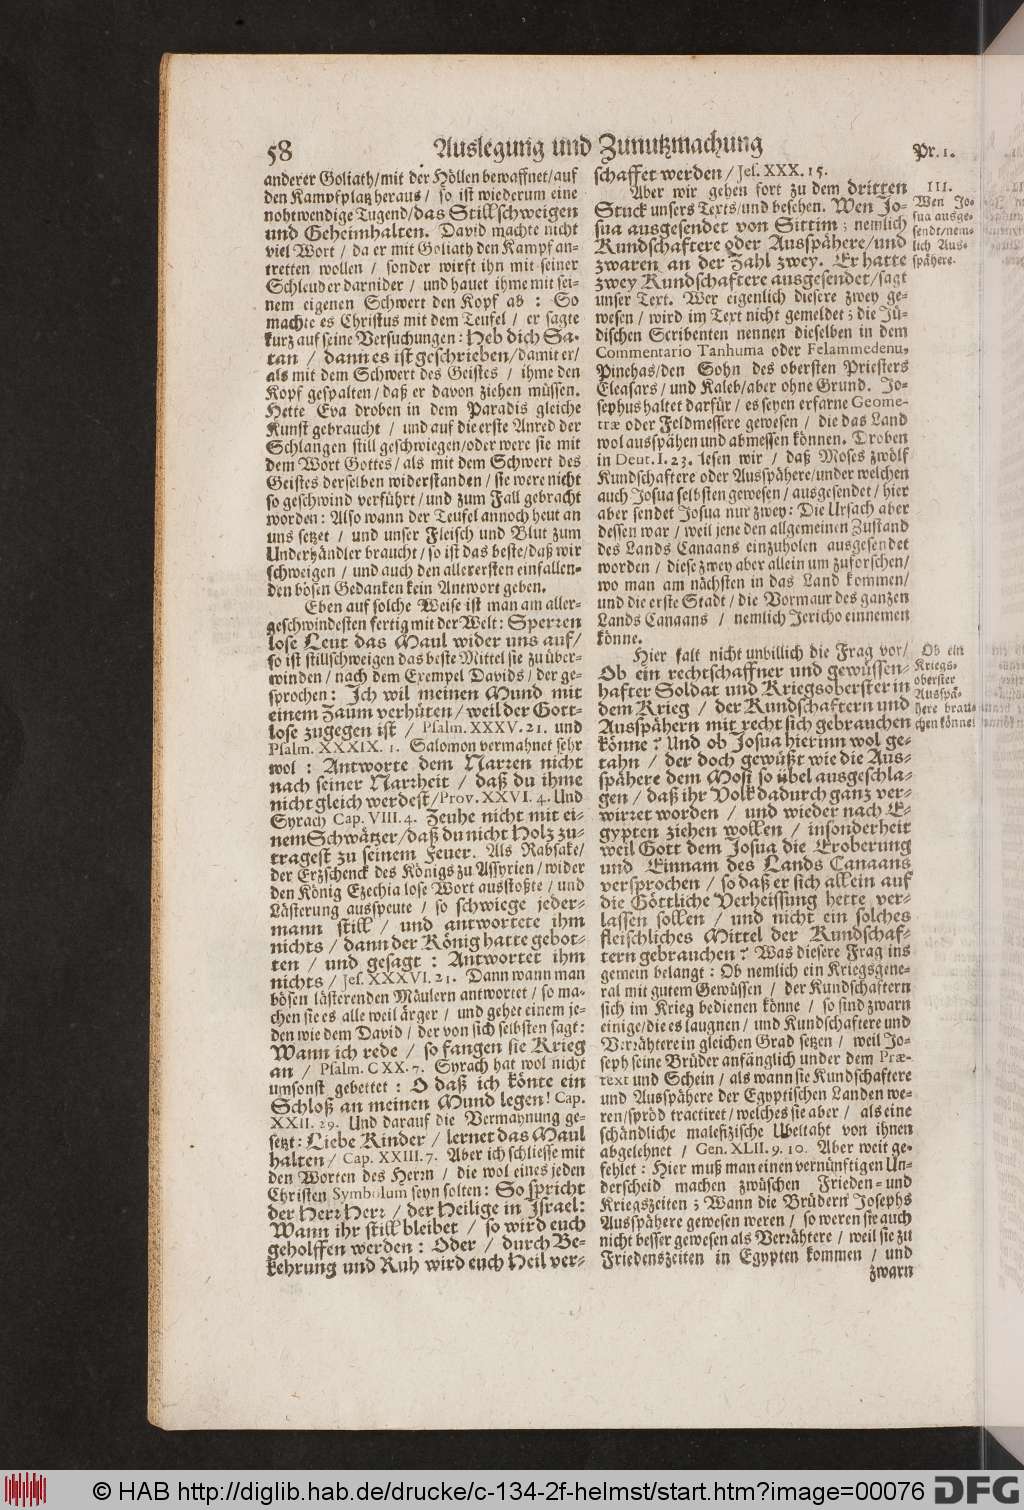 58 Auslegung und Zunutzmachung Pr. 1.
anderer Goliath/mit der Höllen bewaffnet/auf
den Kampfplatz heraus/ so ist wiederum eine
nohtwendige Tugend/das Stillschweigen
und Geheimhalten. David machte nicht
viel Wort / da er mit Goliath den Kampf an-
tretten wollen / sonder wirft ihn mit seiner
Schleuder darnider / und hauet ihme mit sei-
nem eigenen Schwert den Kopf ab : So
machte es Christus mit dem Teufel / er sagte
kurz auf seine Versuchungen: Heb dich Sa-
tan / dann es ist geschrieben/damit er/
als mit dem Schwert des Geistes / ihme den
Kopf gespalten/ daß er davon ziehen müssen.
Hette Eva droben in dem Paradis gleiche
Kunst gebraucht / und auf die erste Anred der
Schlangen still geschwiegen/oder were sie mit
dem Wort Gottes/ als mit dem Schwert des
Geistes derselben widerstanden/ sie were nicht
so geschwind verführt/und zum Fall gebracht
worden: Also wann der Teufel annoch heut an
uns setzet / und unser Fleisch und Blut zum
Underhändler braucht/ so ist das beste/daß wir
schweigen / und auch den allerersten einfallen-
den bösen Gedanken kein Antwort geben.
Eben auf solche Weise ist man am aller-
geschwindesten fertig mit der Welt: Sperren
lose Leut das Maul wider uns auf/
so ist stillschweigen das beste Mittel sie zu über-
winden/ nach dem Exempel Davids/ der ge-
sprochen: Ich wil meinen Mund mit
einem Zaum verhüten/ weil der Gott-
lose zugegen ist / Psalm. XXXV. 21. und
Psalm. XXXIX. 1. Salomon vermahnet sehr
wol : Antworte dem Narren nicht
nach seiner Narrheit / daß du ihme
nicht gleich werdest/Prov. XXVI. 4. Und
Syrach Cap. VIII. 4. Zeuhe nicht mit ei-
nem Schwätzer/daß du nicht Holz zu-
tragest zu seinem Feuer. Als Rabsake/
der Erzschenck des Königs zu Assyrien/ wider
den König Ezechia lose Wort ausstoßte / und
Lästerung ausspeute / so schwiege jeder-
mann still / und antwortete ihm
nichts / dann der König hatte gebot-
ten / und gesagt : Antwortet ihm
nichts / Jes. XXXVI. 21. Dann wann man
bösen lästerenden Mäulern antwortet / so ma-
chen sie es alle weil ärger / und gehet einem je-
den wie dem David / der von sich selbsten sagt:
Wann ich rede / so fangen sie Krieg
an / Psalm. CXX. 7. Syrach hat wol nicht
umsonst gebettet : O daß ich könte ein
Schloß an meinen Mund legen! Cap.
XXII. 29. Und darauf die Vermaynung ge-
setzt: Liebe Kinder / lernet das Maul
halten / Cap. XXIII. 7. Aber ich schliesse mit
den Worten des Herrn / die wol eines jeden
Christen Symbolum seyn solten: So spricht
der Herr Herr / der Heilige in Israel:
Wann ihr still bleibet / so wird euch
geholffen werden : Oder / durch Be-
kehrung und Ruh wird euch Heil ver-
schaffet werden / Jes. XXX. 15.
Aber wir gehen fort zu dem dritten
Stuck unsers Texts/und besehen. Wen Jo-
sua ausgesendet von Sittim ; nemlich
Kundschaftere oder Ausspähere/und
zwaren an der Zahl zwey. Er hatte
zwey Kundschaftere ausgesendet/sagt
unser Text. Wer eigenlich diesere zwey ge-
wesen / wird im Text nicht gemeldet ; die Jü-
dischen Scribenten nennen dieselben in dem
Commentario Tanhuma oder Felammedenu,
Pinehas/den Sohn des obersten Priesters
Eleasars / und Kaleb/aber ohne Grund. Jo-
sephus haltet darfür / es seyen erfarne Geome-
træ oder Feldmessere gewesen / die das Land
wol ausspähen und abmessen können. Droben
in Deut. I. 23. lesen wir / daß Moses zwölf
Kundschaftere oder Ausspähere/under welchen
auch Josua selbsten gewesen / ausgesendet / hier
aber sendet Josua nur zwey: Die Ursach aber
dessen war / weil jene den allgemeinen Zustand
des Lands Canaans einzuholen ausgesendet
worden / diese zwey aber allein um zuforschen/
wo man am nächsten in das Land kommen/
und die erste Stadt / die Vormaur des ganzen
Lands Canaans / nemlich Jericho einnemen
könne.
Hier falt nicht unbillich die Frag vor/
Ob ein rechtschaffner und gewüssen-
hafter Soldat und Kriegsoberster in
dem Krieg / der Kundschaftern und
Ausspähern mit recht sich gebrauchen
könne ? Und ob Josua hierinn wol ge-
tahn / der doch gewüßt wie die Aus-
spähere dem Mosi so übel ausgeschla-
gen / daß ihr Volk dadurch ganz ver-
wirret worden / und wieder nach E-
gypten ziehen wollen / insonderheit
weil Gott dem Josua die Eroberung
und Einnam des Lands Canaans
versprochen / so daß er sich allein auf
die Göttliche Verheissung hette ver-
lassen sollen / und nicht ein solches
fleischliches Mittel der Kundschaf-
tern gebrauchen? Was diesere Frag ins
gemein belangt : Ob nemlich ein Kriegsgene-
ral mit gutem Gewüssen / der Kundschaftern
sich im Krieg bedienen könne / so sind zwarn
einige/die es laugnen / und Kundschaftere und
Verrähtere in gleichen Grad setzen / weil Jo-
seph seine Brüder anfänglich under dem Præ-
text und Schein / als wann sie Kundschaftere
und Ausspähere der Egyptischen Landen we-
ren/spröd tractiret/welches sie aber / als eine
schändliche malefizische Ubeltaht von ihnen
abgelehnet / Gen. XLII. 9. 10. Aber weit ge-
fehlet : Hier muß man einen vernünftigen Un-
derscheid machen zwüschen Frieden- und
Kriegszeiten ; Wann die Brüdern Josephs
Ausspähere gewesen weren / so weren sie auch
nicht besser gewesen als Verrähtere / weil sie zu
Friedenszeiten in Egypten kommen / und
zwarn
III.
Wen Jo-
sua ausge-
sendt/nem-
lich Aus-
spähere.
Ob ein
Kriegs-
oberster
Ausspä-
here brau-
chen könne?
© HAB http://diglib.hab.de/drucke/c-134-2f-helmst/start.htm?image=00076 DFG